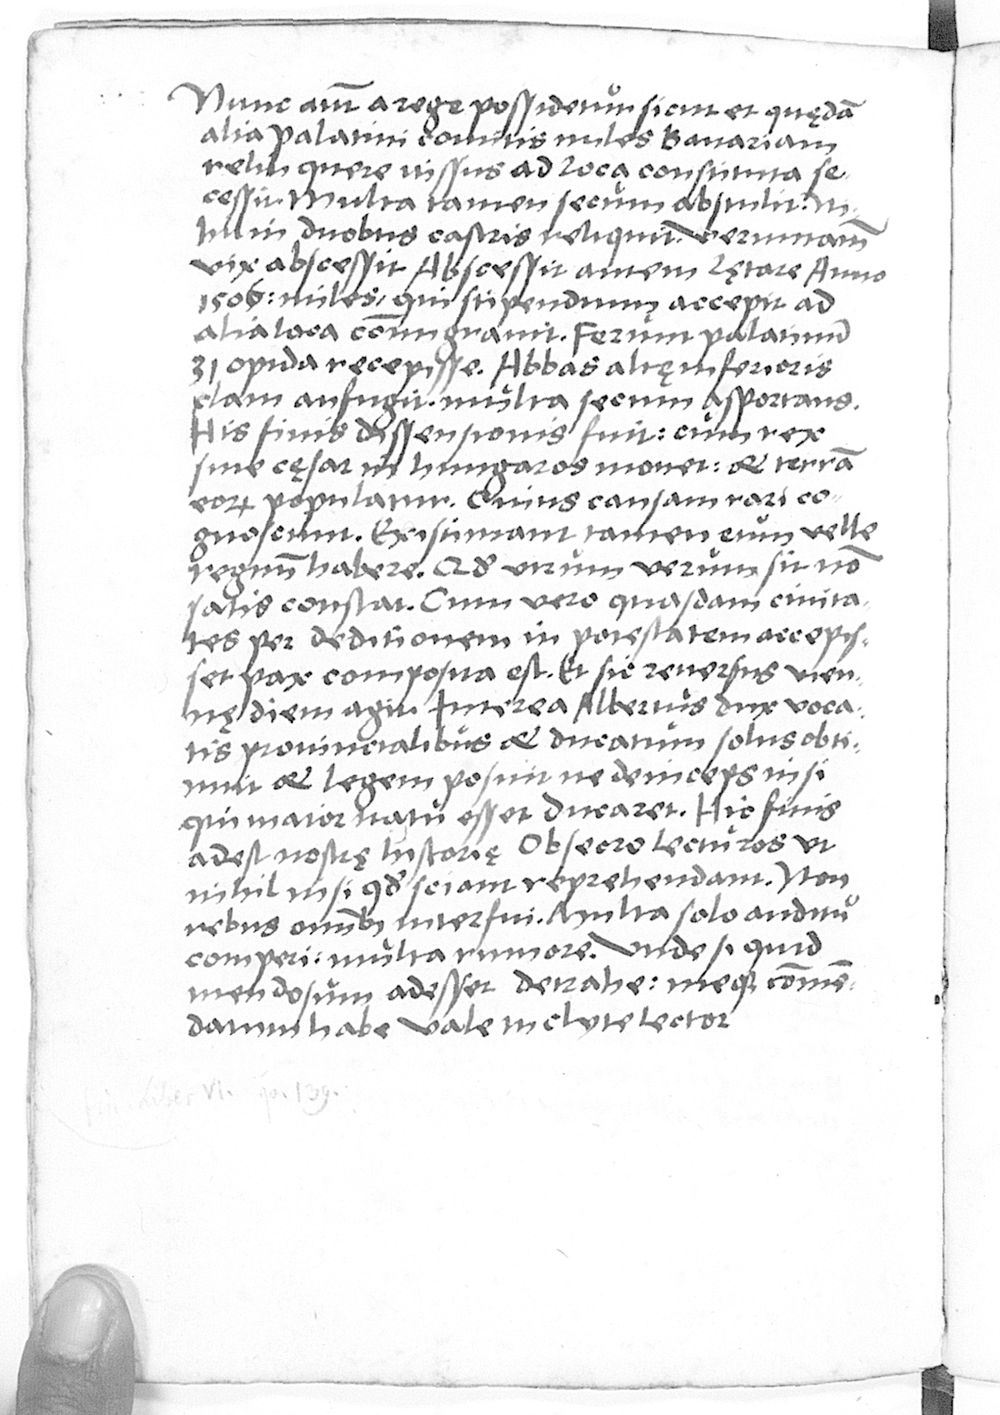 Nunc aut̄ a rege possidetur sicut et quędā
alia palatini comitis miles Bauariam
relin quere iussus ad loca constituta se-
cessit. Multa tamen secum abstulit: ni-
hil in duobus castris reliquit. verumtam̄
vix abscessit Abscessit autem lętare Anno
1506: miles, qui stipendium accepit ad
alia loca cōmigrauit. Ferunt palatinū
31 opida recepisse. Abbas altę inferioris
clam aufugit. multa secum asportans.
His finis dissensionis fuit: cum rex
siue cęsar in hungaros mouet: & terrā
eorꝝ populatur. Cuius causam rari co-
gnoscunt. Existimant tamen eum velle
regnū habere. Qd̄ utrum verum sit nō
satis constat. Cum vero quasdam ciuita-
tes per deditionem in potestatem accepis-
set pax composita est. Et sic reuersus vien-
nę diem agit. Interea Albertus dux voca-
tis prouincialibus & ducatum solus obti-
nuit & legem posuit ne deinceps nisi
qui maior natu esset ducaret. Hic finis
adest nostrę historię Obsecro lecturos ut
nihil nisi qd̄ sciant reprehendant. Non
rebus omībꝫ interfui. Multa solo auditu
comperi: multa rumore. Vnde si quid
mendosum adesset detrahe: meqꝫ cōmē-
datum habe Vale inclyte lector
liber VI. 139.